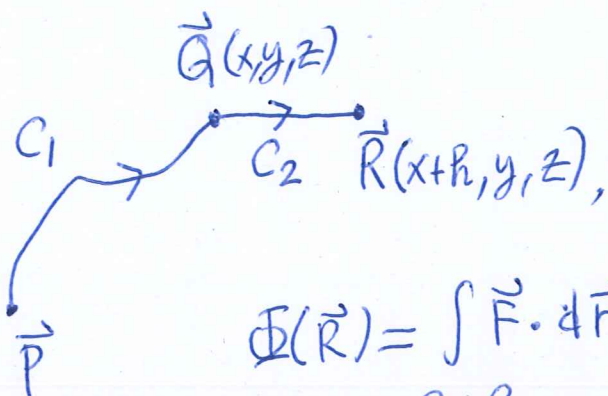 Q⃗(x,y,z)
C₁
C₂
R⃗(x+h,y,z),
P⃗
Φ(R⃗) = ∫ F⃗ ·